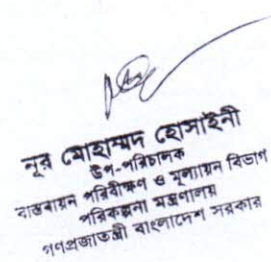 নূর মোহাম্মদ হোসাইনী
উপ-পরিচালক
বাস্তবায়ন পরিবীক্ষণ ও মূল্যায়ন বিভাগ
পরিকল্পনা মন্ত্রণালয়
গণপ্রজাতন্ত্রী বাংলাদেশ সরকার